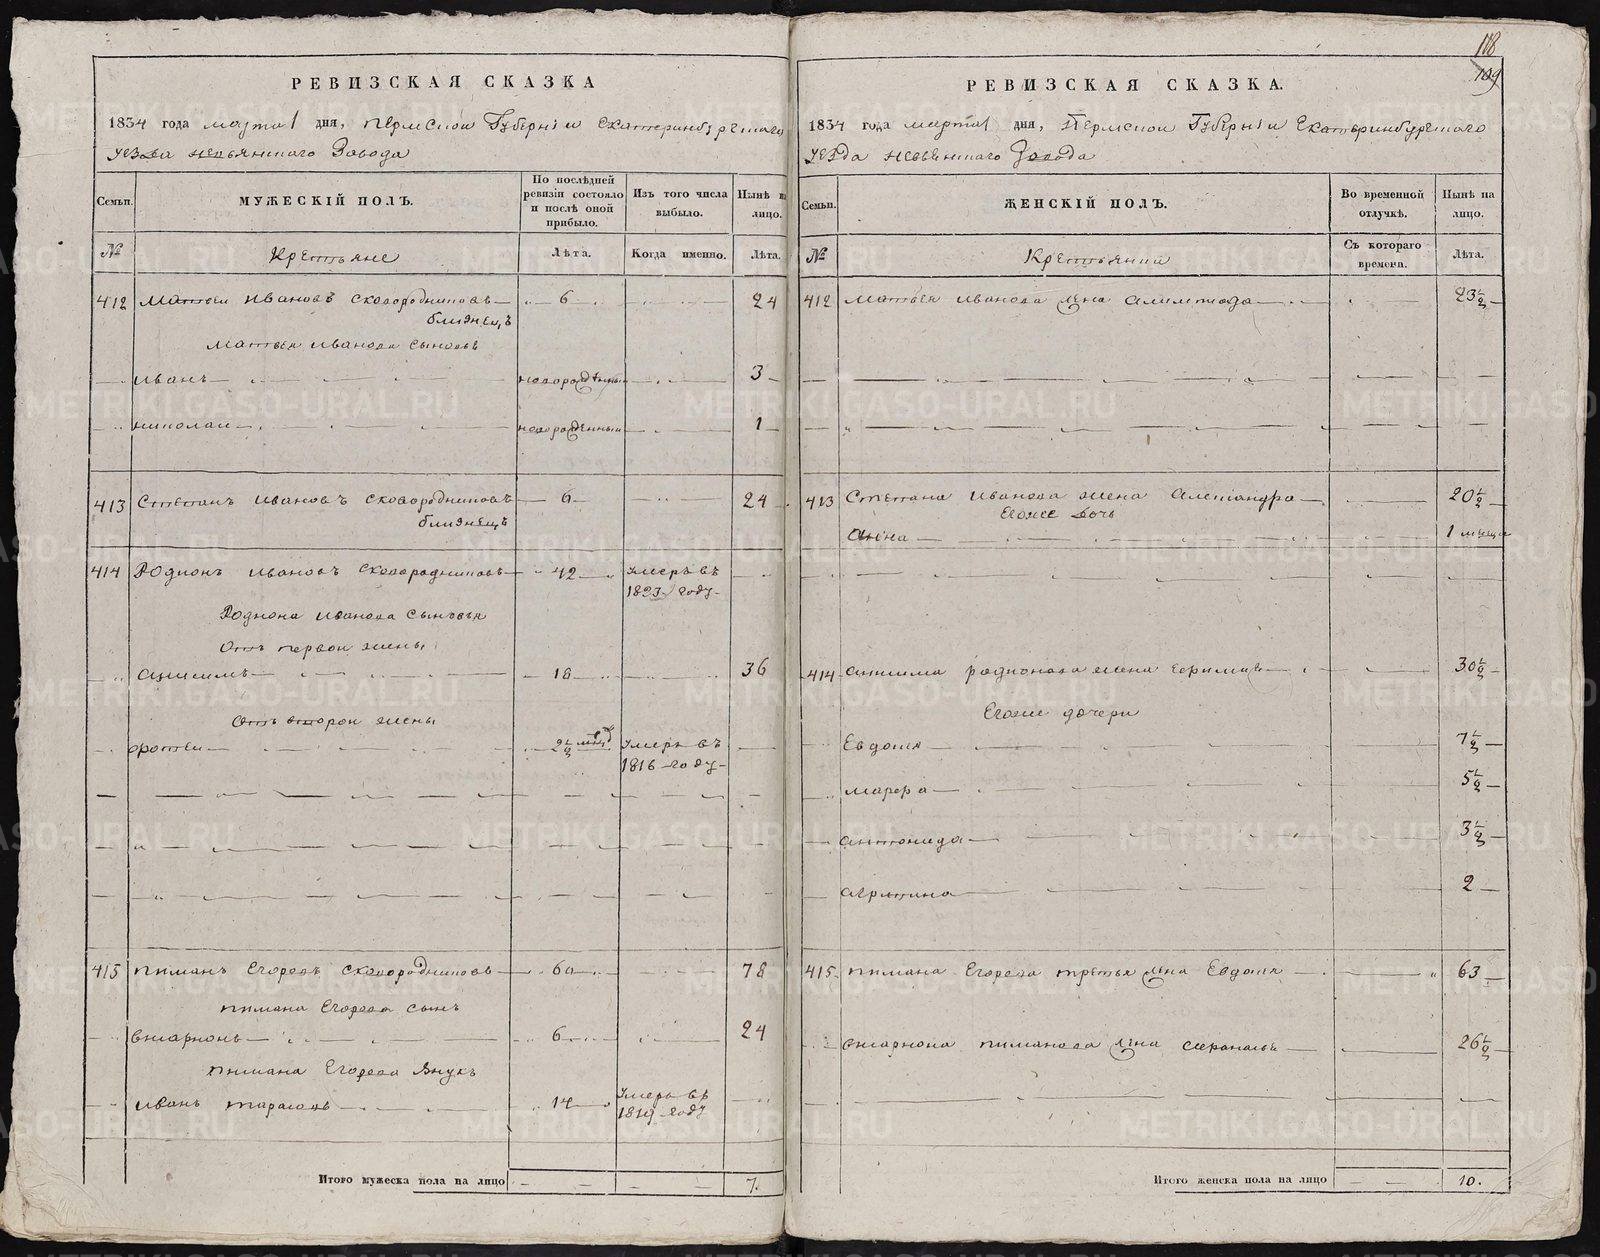 118
109
РЕВИЗСКАЯ СКАЗКА
1834 года марта 1 дня, Пермскои Губерніи Екатеринбургскаго
уезда невьянскаго Завода
Семьи.
МУЖЕСКІЙ ПОЛЪ.
По послѣдней ревизіи состояло и послѣ оной прибыло.
Изъ того числа выбыло.
Нынѣ на лицо.
№
Крестьяне
Лѣта.
Когда именно.
Лѣта.
412 Матвеи Ивановъ Сковородниковъ 6 24
близнецъ
Матвея Иванова сыновья
Иванъ новорожденныи 3
Николаи новорожденныи 1
413 Степанъ Ивановъ Сковородниковъ 6 24
близнецъ
414 Родионъ Ивановъ Сковородниковъ 42 Умеръ въ
году
Родиона Иванова сыновья
Отъ первои жены
Анисимъ 18 36
Отъ второи жены
Фотеи 2½ Умеръ въ
1816 году
415 Пиманъ Егоровъ Сковородниковъ 60 78
Пимана Егорова сынъ
Вкарионъ 6 24
Пимана Егорова Внукъ
Иванъ Тарасовъ 14 Умеръ въ
1819 году
Итого мужеска пола на лицо 7.
РЕВИЗСКАЯ СКАЗКА.
1834 года марта 1 дня, Пермскои Губерніи Екатеринбургскаго
уезда невьянскаго Завода
Семьи.
ЖЕНСКІЙ ПОЛЪ.
Во временной отлучкѣ.
Нынѣ на лицо.
№
Крестьянки
Съ котораго времени.
Лѣта.
412 Матвея Иванова жена 23½
413 Степана Иванова жена Александра 20½
Егоже дочь
Анна 1 месяца
414 Анисима Родионова жена 30½
Егоже дочери
Евдокия 7½
Марфа 5½
Антонида 3½
Агрипина 2
415 Пимана Егорова третья жена Евдокия 63
Вкариона Пиманова жена 26½
Итого женска пола на лицо 10.
METRIKI.GASO-URAL.RU